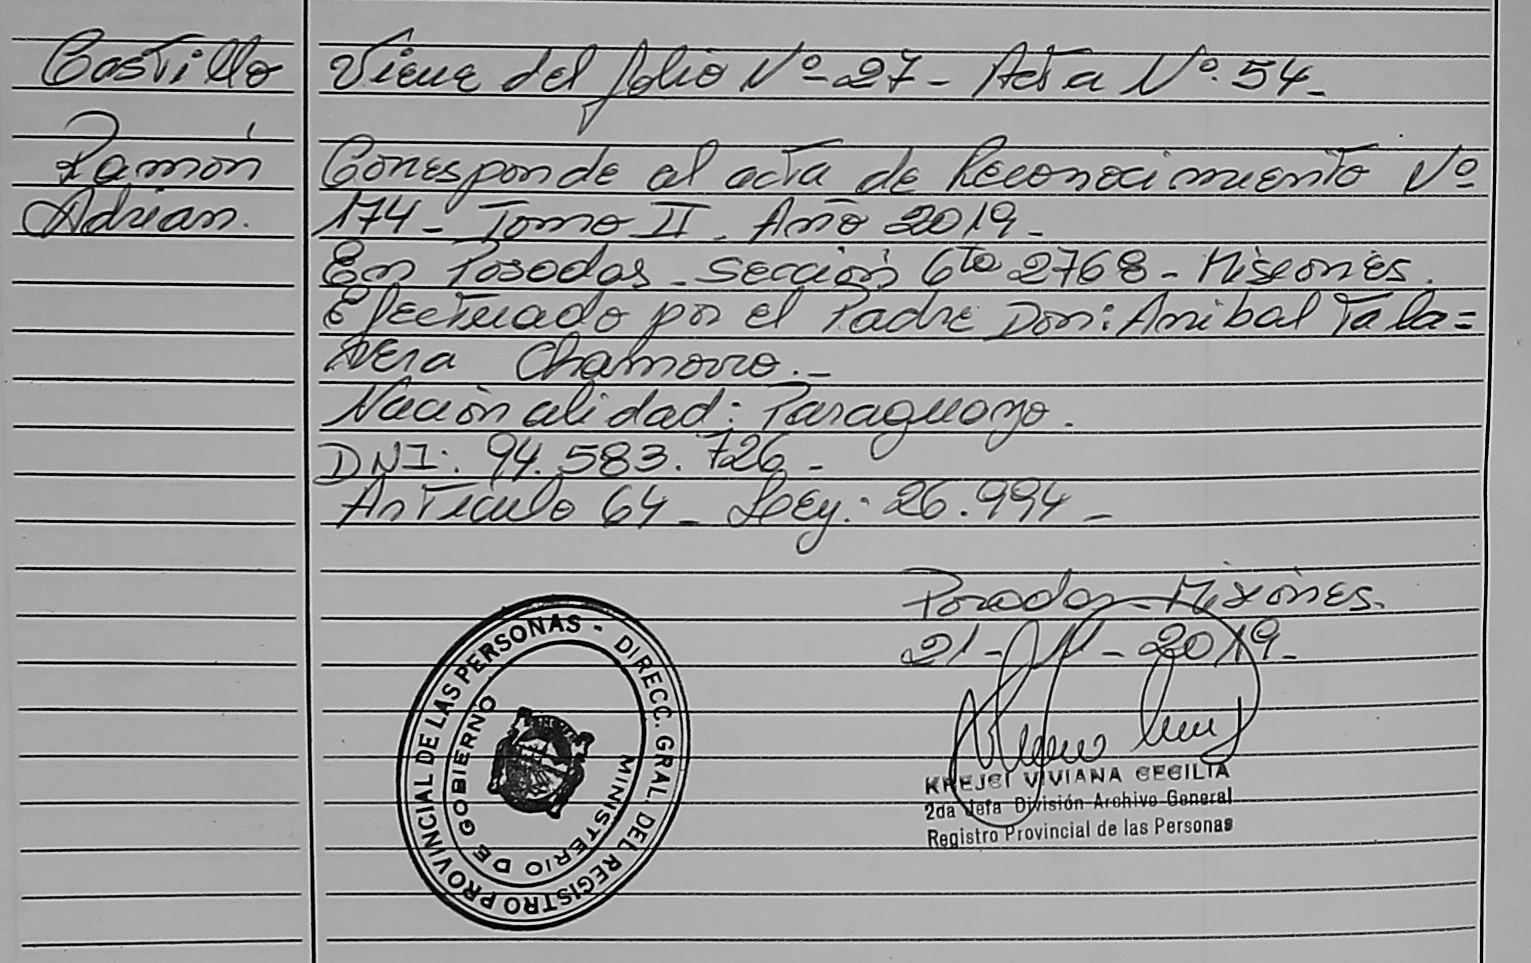 Castillo
Ramón
Adrian.
Viene del folio Nº 27 - Acta Nº 54 -
Corresponde al acta de Reconocimiento Nº
174 - Tomo II. Año 2019 -
En Posadas - sección 6ta 2768 - Misiones.
Efectuado por el Padre Don: Anibal Tala=
vera Chamorro. -
Nacionalidad: Paraguayo.
DNI: 94.583.726 -
Articulo 64 - Ley: 26.994 -
Posadas - Misiones.
21 - 11 - 2019 -
KREJCI VIVIANA CECILIA
2da Jefa División Archivo General
Registro Provincial de las Personas
DIRECC. GRAL. DEL REGISTRO PROVINCIAL DE LAS PERSONAS -
MINISTERIO DE GOBIERNO